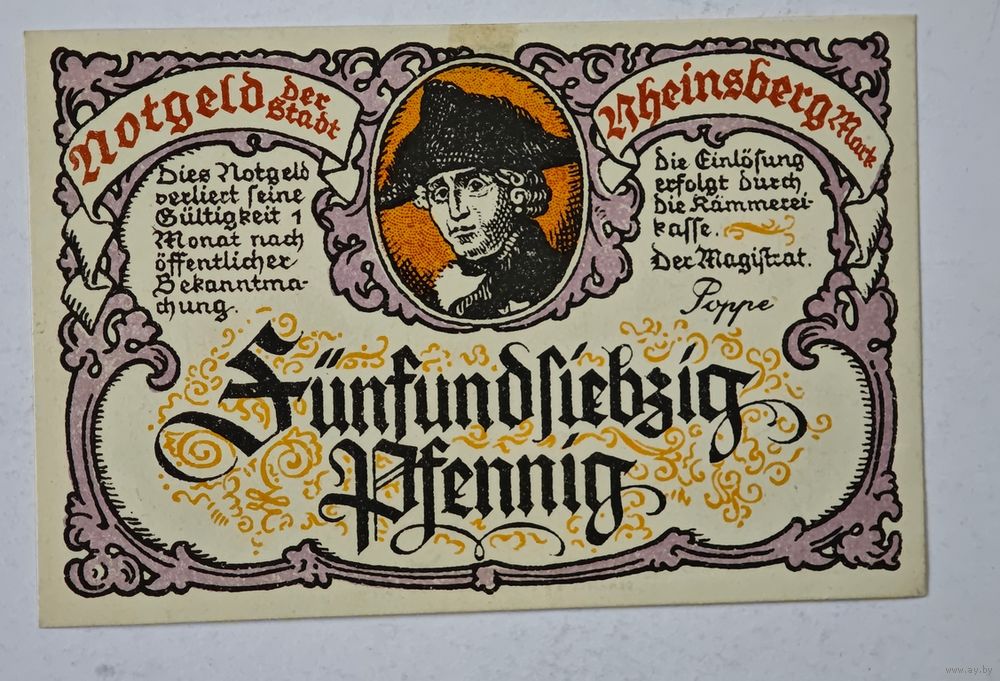 Notgeld der Stadt
Rheinsberg Mark
Dies Notgeld
verliert seine
Gültigkeit 1
Monat nach
öffentlicher
Bekanntma-
chung.
Die Einlösung
erfolgt durch
die Kämmerei-
kasse.
Der Magistrat.
Poppe
Fünfundsiebzig
Pfennig
www.ay.by